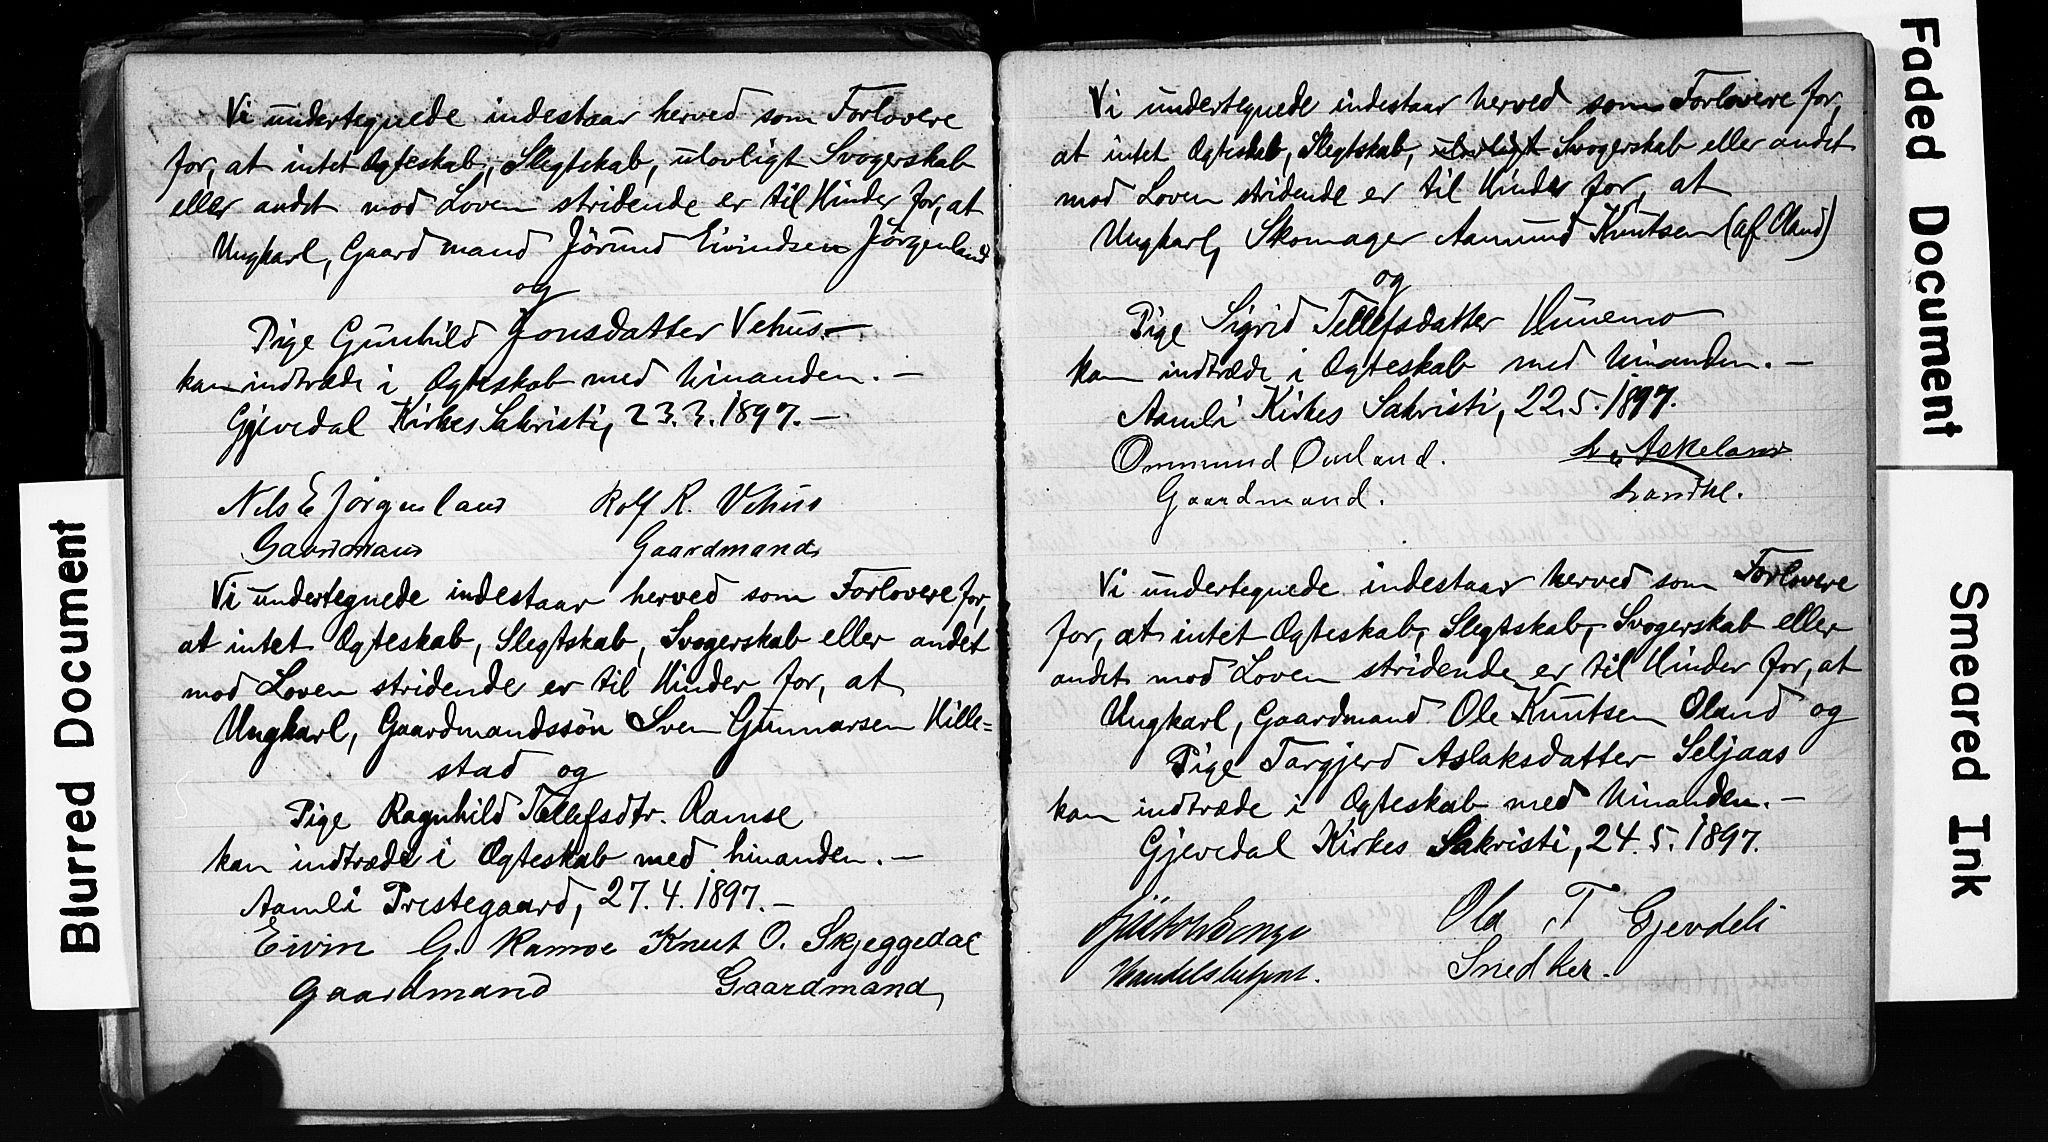 Vi undertegnede indestaar herved som Forlovere
for, at intet Ogteskab, Slegtskab, ulovligt Svogerskab
eller andet mod Loven stridende er til Hinder for, at
Ungkarl, Gaardmand Jörund Eivindsen Jörgenland
og
Pige Gunhild Jonsdatter Vehus.-
kan indtræde i Ogteskab med hinanden. -
Gjevedal Kirkes Sakristi, 23.3.1897. -
Nils E Jörgenland Rolf R. Vehus
Gaardmand Gaardmand
Vi undertegnede indestaar herved som Forlovere for,
at intet Ogteskab, Slegtskab, Svogerskab eller andet
mod Loven stridende er til Hinder for, at
Ungkarl, Gaardmandssön Sven Gunnarsen Hille-
stad og
Pige Ragnhild Tellefsdtr. Ramse
kan indtræde i Ogteskab med hinanden. -
Aamli Prestegaard, 27.4.1897. -
Eivin G. Ramse Knut O. Skjeggedal
Gaardmand Gaardmand
Vi undertegnede indestaar herved som Forlovere for,
at intet Ogteskab, Slegtskab, ulovligt Svogerskab eller andet
mod Loven stridende er til Hinder for, at
Ungkarl, Skomager Aamund Knutsen (af Oland)
og
Pige Sigrid Tellefsdatter Hunemo
kan indtræde i Ogteskab med hinanden. -
Aamli Kirkes Sakristi, 22.5.1897.
Ommund Omland. Askeland
Gaardmand. Landhl.
Vi undertegnede indestaar herved som Forlovere
for, at intet Ogteskab, Slegtskab, Svogerskab eller
andet mod Loven stridende er til Hinder for, at
Ungkarl, Gaardmand Ole Knutsen Oland og
Pige Targjerd Aslaksdatter Seljaas
kan indtræde i Ogteskab med hinanden. -
Gjevedal Kirkes Sakristi, 24.5.1897.
Ola T Gjevdeli
Handelsbetjent. Snedker.
Blurred Document
Faded Document
Smeared Ink